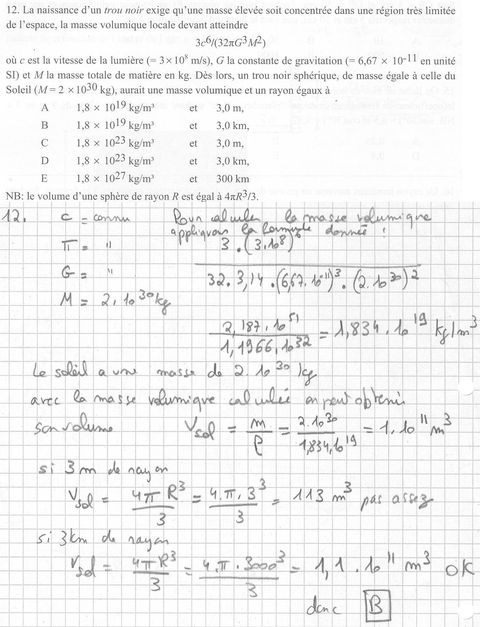 12. La naissance d'un trou noir exige qu'une masse élevée soit concentrée dans une région très limitée
de l'espace, la masse volumique locale devant atteindre
3c⁶/(32πG³M²)
où c est la vitesse de la lumière (= 3×10⁸ m/s), G la constante de gravitation (= 6,67 × 10⁻¹¹ en unité
SI) et M la masse totale de matière en kg. Dès lors, un trou noir sphérique, de masse égale à celle du
Soleil (M = 2 ×10³⁰ kg), aurait une masse volumique et un rayon égaux à
A 1,8 × 10¹⁹ kg/m³ et 3,0 m,
B 1,8 × 10¹⁹ kg/m³ et 3,0 km,
C 1,8 × 10²³ kg/m³ et 3,0 m,
D 1,8 × 10²³ kg/m³ et 3,0 km,
E 1,8 × 10²⁷ kg/m³ et 300 km
NB: le volume d'une sphère de rayon R est égal à 4πR³/3.
12. C = connu Pour calculer la masse volumique
appliquons la formule donnée :
π = "
3.(3.10⁸)⁶
G = "
32.3,14.(6,67.10⁻¹¹)³.(2.10³⁰)²
M = 2.10³⁰ kg
2,187.10⁵¹ / 1,1966.10³² = 1,834.10¹⁹ kg/m³
Le soleil a une masse de 2.10³⁰ kg
avec la masse volumique calculée on peut obtenir
son volume Vsol = m/ρ = 2.10³⁰/1,834.10¹⁹ = 1.10¹¹ m³
si 3 m de rayon
Vsol = 4πR³/3 = 4.π.3³/3 = 113 m³ pas assez
si 3km de rayon
Vsol = 4πR³/3 = 4.π.3000³/3 = 1,1.10¹¹ m³ OK
donc B